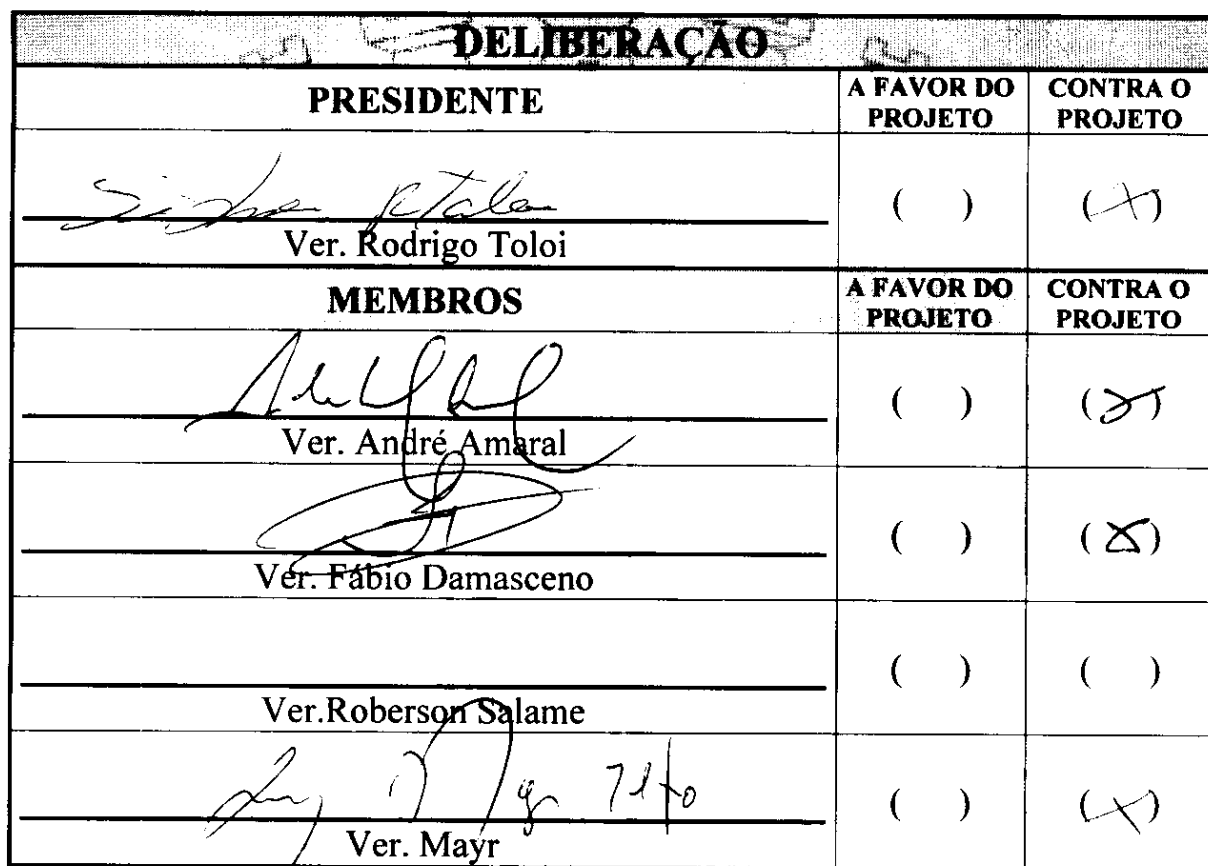 DELIBERAÇÃO
PRESIDENTE A FAVOR DO PROJETO CONTRA O PROJETO
( ) (X)
Ver. Rodrigo Toloi
MEMBROS A FAVOR DO PROJETO CONTRA O PROJETO
( ) (X)
Ver. André Amaral
( ) (X)
Ver. Fábio Damasceno
( ) ( )
Ver.Roberson Salame
( ) (X)
Ver. Mayr